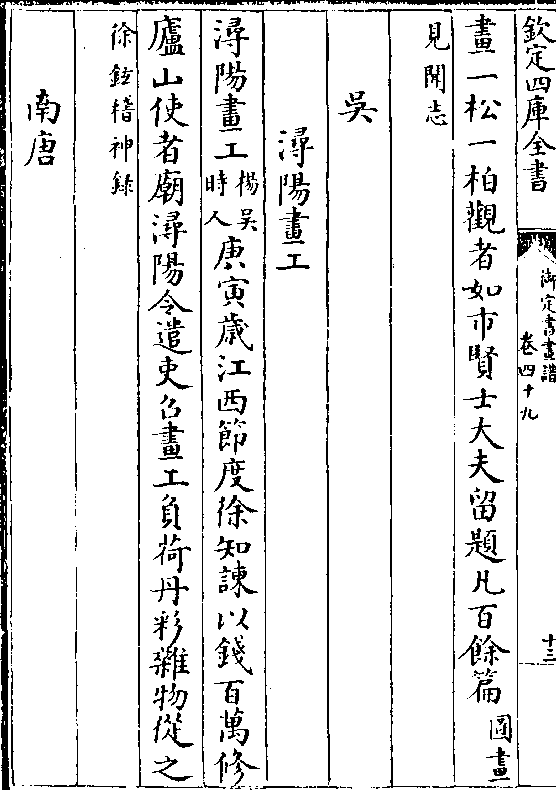 欽定四庫全書
御定書畫譜
卷四十九
十三
畫一松一柏觀者如市賢士大夫留題凡百餘篇圖畫
見聞志
吳
潯陽畫工
潯陽畫工楊吳時人庚寅歲江西節度徐知諫以錢百萬修
廬山使者廟潯陽令遣吏召畫工負荷丹彩雜物從之
徐鉉稽神錄
南唐